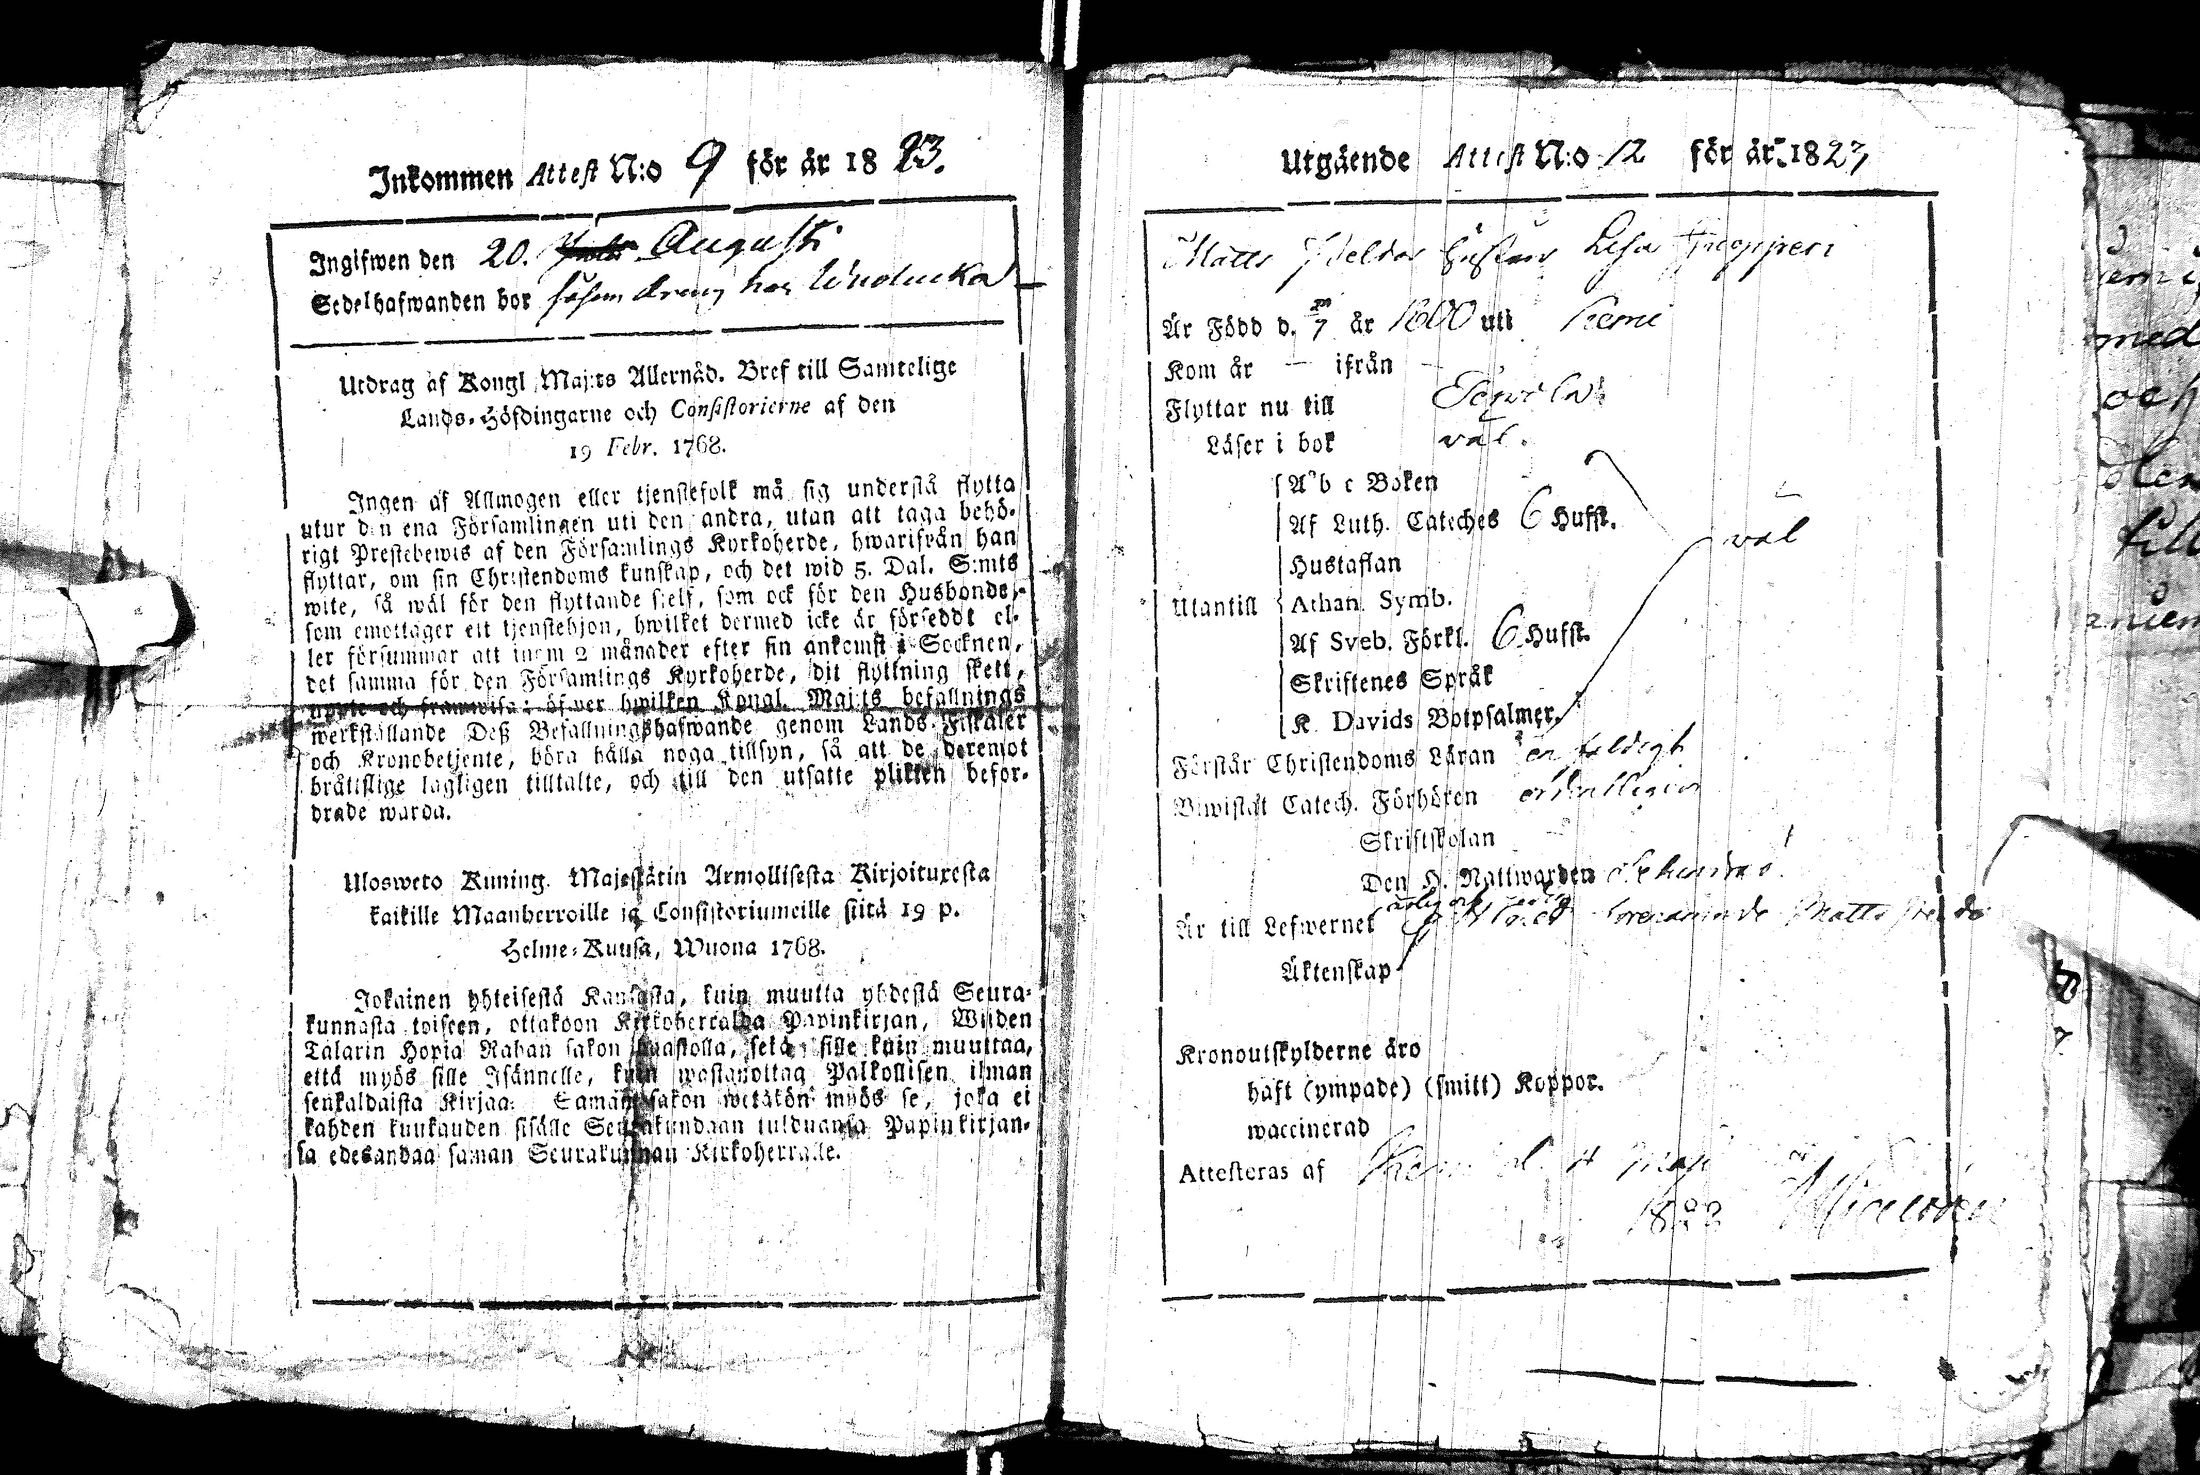 Inkommen Attest N:o 9 för år 1823.
Ingifwen den 20. Augusti
Sedelhafwanden bor såsom dräng hos
Utdrag af Kongl Maj:ts Allernåd. Bref till Samtelige
Lands-Höfdingarne och Consistorierne af den
19 Febr. 1768.
Ingen af Allmogen eller tjenstefolk må sig understå flytta
utur den ena Församlingen uti den andra, utan att taga behö-
rigt Prestebewis af den Församlings Kyrkoherde, hwarifrån han
flyttar, om sin Christendoms kunskap, och det wid 5. Dal. S:mts
wite, så wäl för den flyttande sielf, som ock för den Husbonde,
som emottager ett tjenstehjon, hwilket dermed icke är förseddt el-
ler försummar att inom 2 månader efter sin ankomst i Socknen,
det samma för den Församlings Kyrkoherde, dit flyttning skett,
upte och framwisa: öfwer hwilken Kongl. Maj:ts befallnings
werkställande Deß Befallningshafwande genom Lands-Fiskaler
och Kronobetjente, böra hålla noga tillsyn, så att de deremot
bråttslige lagligen tilltalte, och till den utsatte plikten befor-
drade warda.
Ulosweto Kuning. Majestätin Armollisesta Kirjoituxesta
kaikille Maanherroille ja Consistoriumeille siitä 19 p.
Helme-Kuusa, Wuona 1768.
Jokainen yhteisestä Kansasta, kuin muutta yhdestä Seura-
kunnasta toiseen, ottakoon Kirkoherralda Papinkirjan, Wiiden
Talarin Hopia Rahan sakon haastolla, sekä sille kuin muuttaa,
että myös sille Isännelle, kuin wastanottaa Palkollisen ilman
senkaldaista Kirjaa: Saman sakon wetäkön myös se, joka ei
kahden kuukauden sisälle Seurakundaan tulduansa Papinkirjan-
sa edesandaa saman Seurakunnan Kirkoherralle.
Utgående Attest N:o 12 för år 1823
Matts Gustavs Lisa
Är Född d. 7 år 1800 uti Kemi
Kom år — ifrån —
Flyttar nu till
Läser i bok väl.
A b c Boken
Af Luth. Cateches 6 Hufst.
väl
Hustaflan
Utantill Athan. Symb.
Af Sveb. Förkl. 6 Hufst.
Skriftenes Språk
K. Davids Botpsalmer,
Förstår Christendoms Läran enfaldigt
Biwistat Catech. Förhören ordentligen
Skriftskolan
Den H. Nattwarden
Är till Lefwernet Matts
Äktenskap
Kronoutskylderne äro
haft (ympade) (smitt) Koppor.
waccinerad
Attesteras af Kemi d. 4 Maji